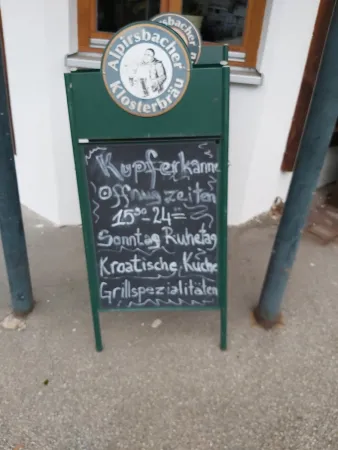 Alpirsbacher
Klosterbräu
Kupferkanne
Öffnugzeiten
15³⁰ 24⁰⁰
Sonntag Ruhetag
Kroatische Küche
Grillspezialitäten